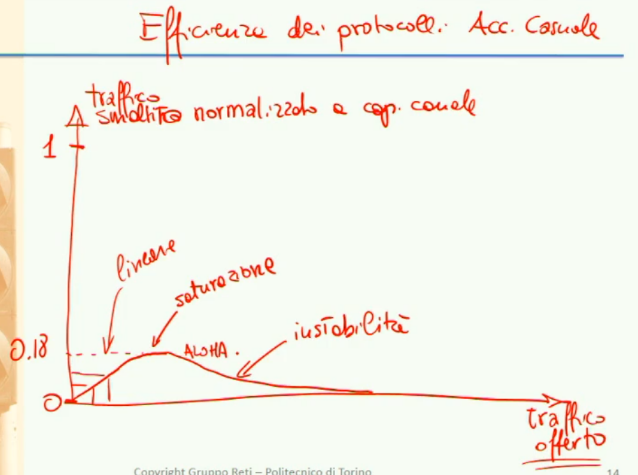 Efficienza dei protocolli: Acc. Casuale
traffico
smaltito normalizzato a cap. canale
1
lineare
saturazione
0.18
ALOHA.
instabilità
0
traffico
offerto
Copyright Gruppo Reti – Politecnico di Torino
14